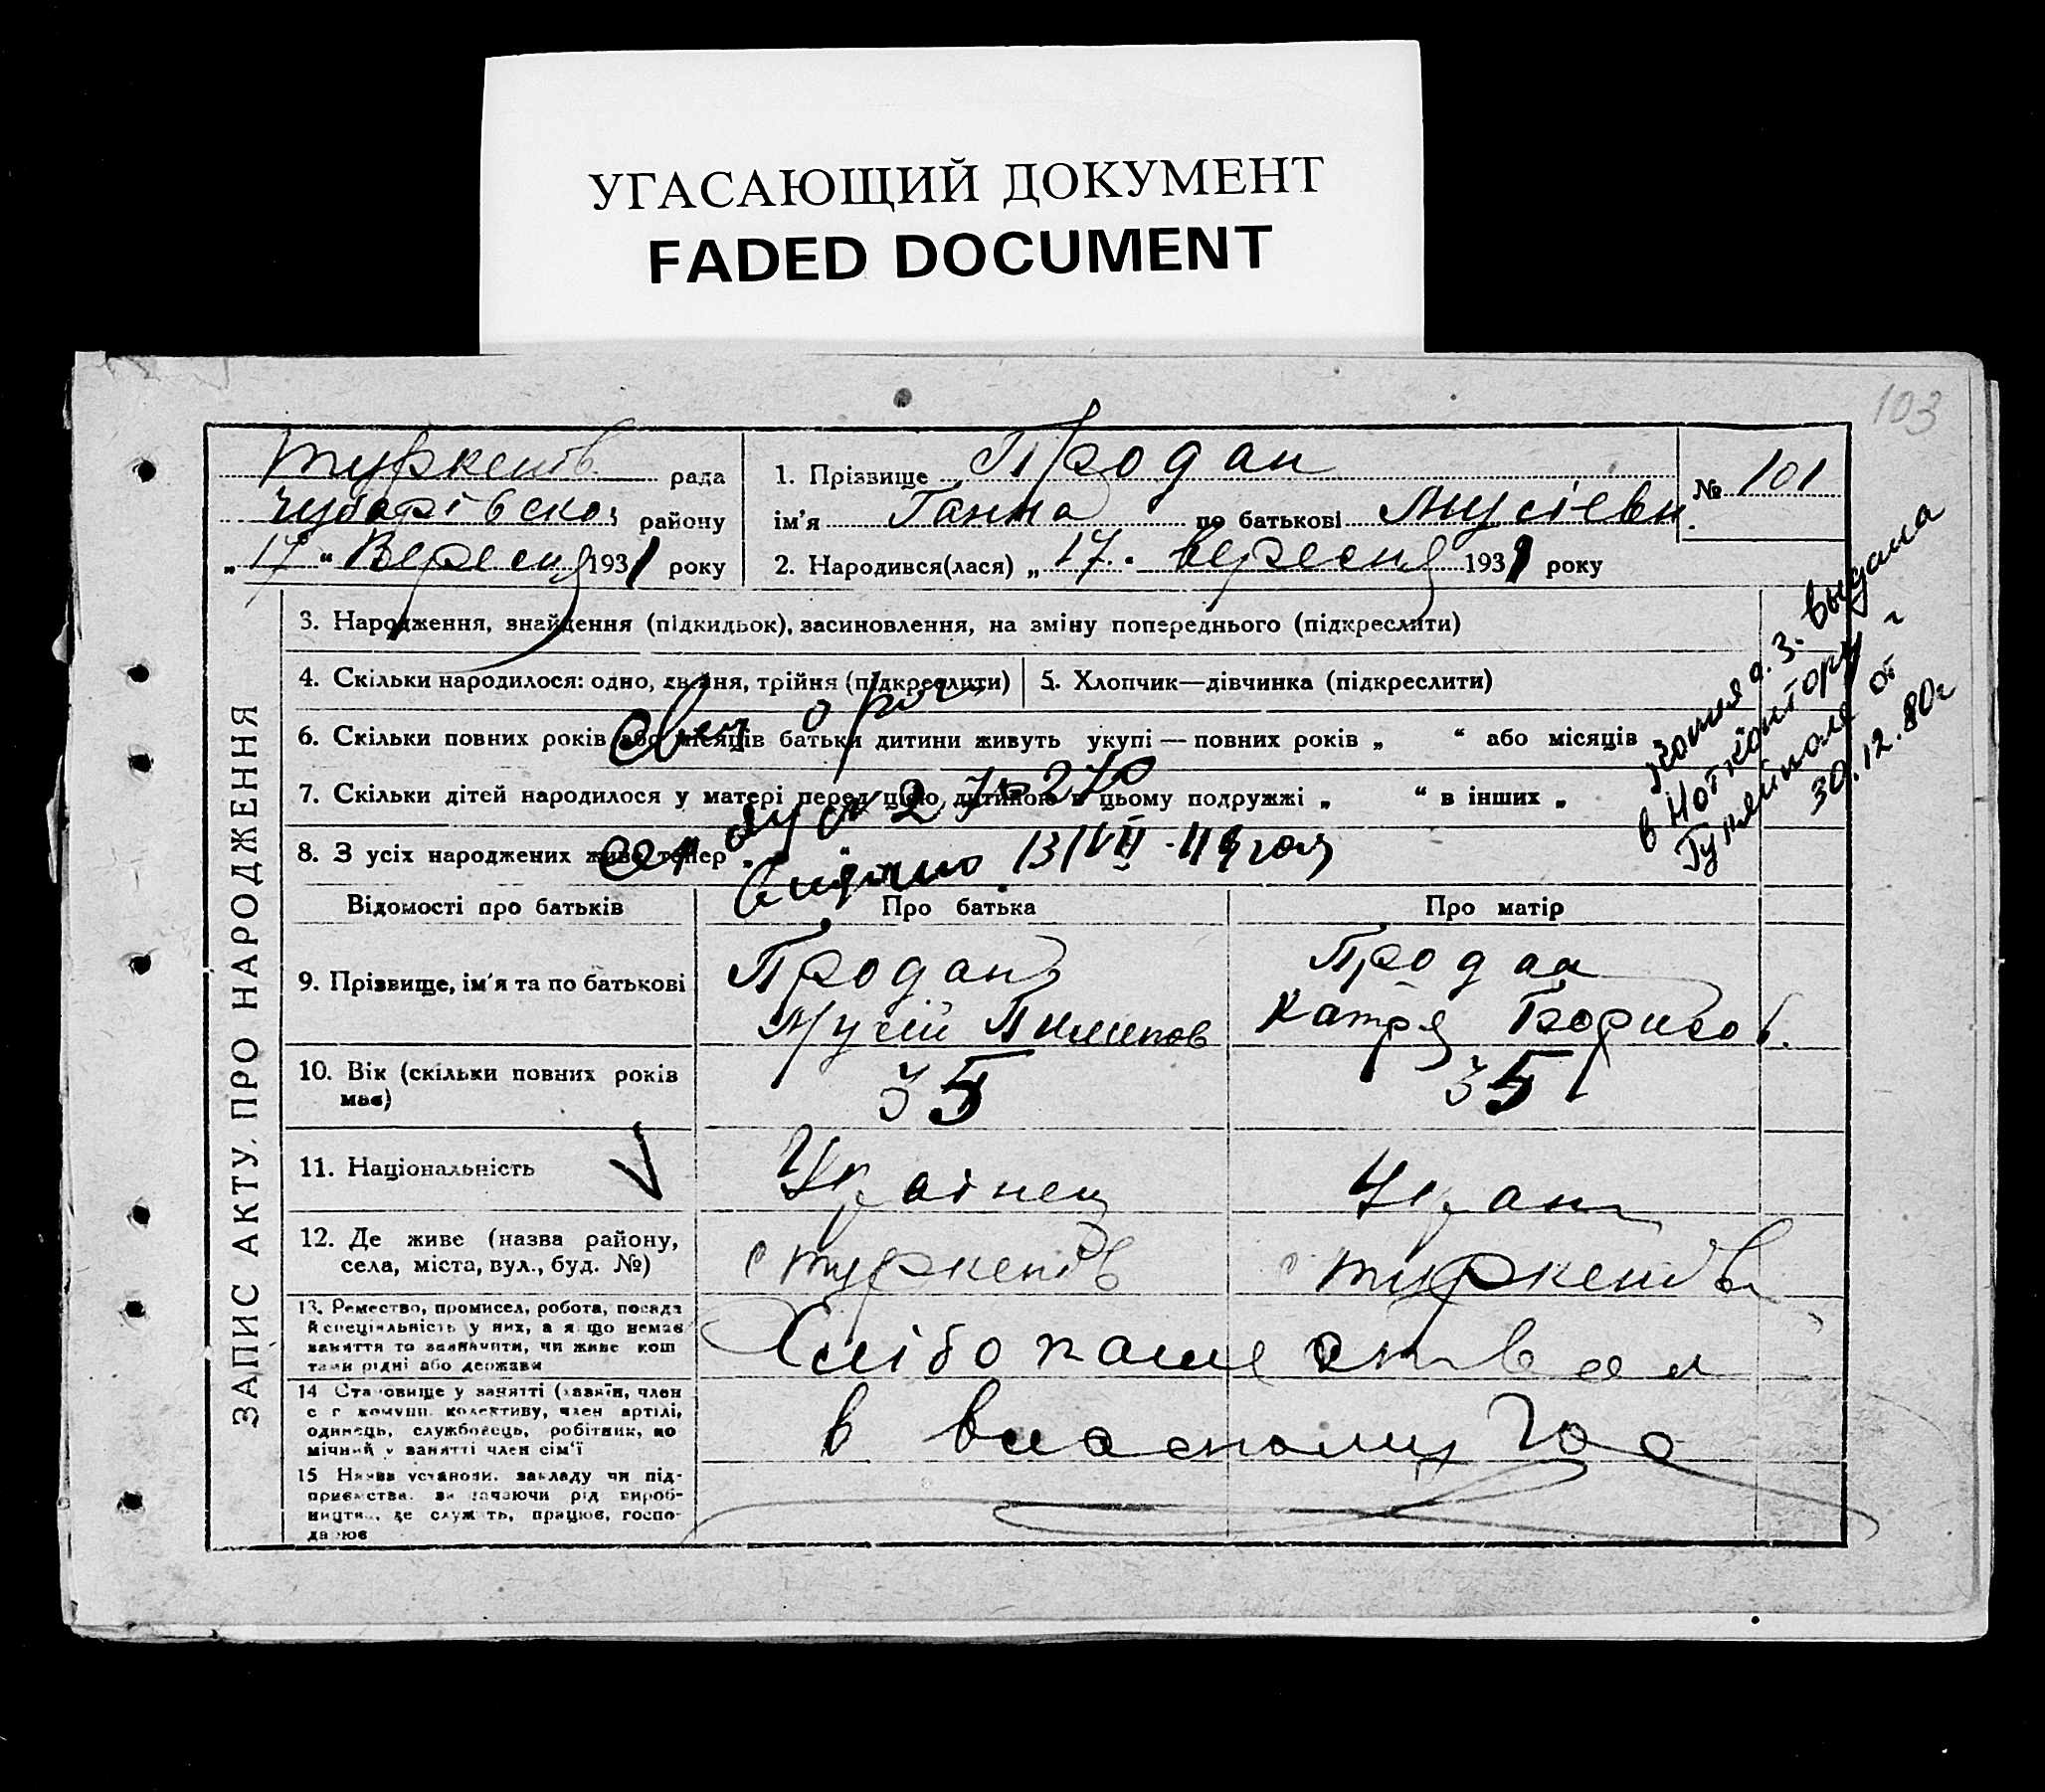 УГАСАЮЩИЙ ДОКУМЕНТ
FADED DOCUMENT
103
Туркенів. рада
Чубарівськ. району
„17“ Вересня 1931 року
1. Прізвище Продан
ім'я Ганна по батькові Мусіевн.
№ 101
2. Народився(лася) „17.“ вересня 1931 року
ЗАПИС АКТУ ПРО НАРОДЖЕННЯ
3. Народження, знайдення (підкидьок), засиновлення, на зміну попереднього (підкреслити)
4. Скільки народилося: одно, двойня, трійня (підкреслити)
5. Хлопчик—дівчинка (підкреслити)
6. Скільки повних років або місяців батьки дитини живуть укупі — повних років „ “ або місяців
7. Скільки дітей народилося у матері перед цією дитиною в цьому подружжі „ “ в інших „
8. З усіх народжених живе тепер „
видано 13/VII
Копия а. з. выдана
в Нотконтору
Гуляйполе от
30.12.80г
Відомості про батьків
Про батька
Про матір
9. Прізвище, ім'я та по батькові
Продан
Мусій Пилипов
Продан
Катря Борисов.
10. Вік (скільки повних років має)
35
35
11. Національність
Українец
Укран
12. Де живе (назва району,
села, міста, вул., буд. №)
с Туркенів
с Туркенівк
13. Ремество, промисел, робота, посада
й спеціяльність у них, а якщо немає
заняття то зазначити, чи живе кош
тами рідні або держави
Хлібопашество
14 Становище у занятті (хазяїн, член
с г комуни. колективу, член артілі,
одинець, службовець, робітник, по
мічний у занятті член сім'ї
в власному гос
15 Назва установи, закладу чи під-
приємства, зазначаючи рід вироб-
ництва, де служить, працює, госпо-
дарює